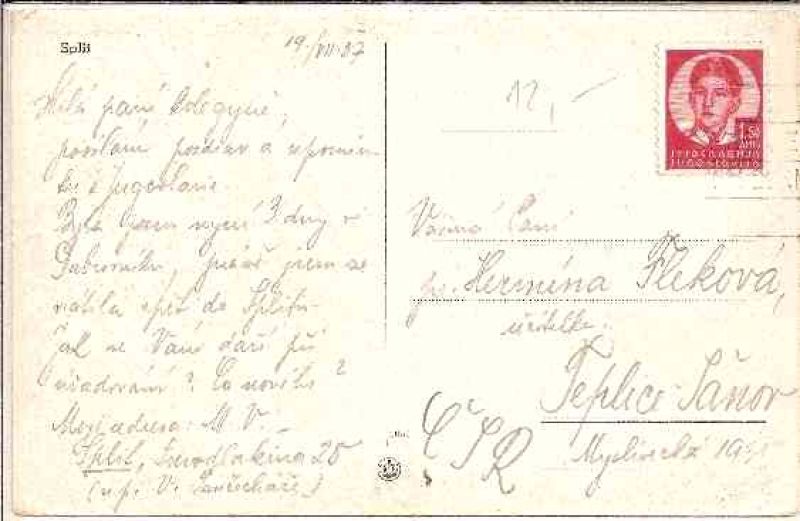 Split
19/VII.37
Milá paní kolegyně,
posílám pozdrav a vzpomín-
ku z Jugoslavie.
Byla jsem nyní 3 dny v
Dubrovníku, právě jsem se
vrátila zpět do Splitu.
Jak se Vám daří při
úřadování? Co nového?
Moje adresa: M. V.
Split, 25
(u p. V.
12,-
1.50
ЈУГОСЛАВИЈА
JUGOSLAVIJA
Vážená Paní
pí. Hermína Fleková,
učitelka.
Teplice-Šanov
Myslivecká 19
ČSR